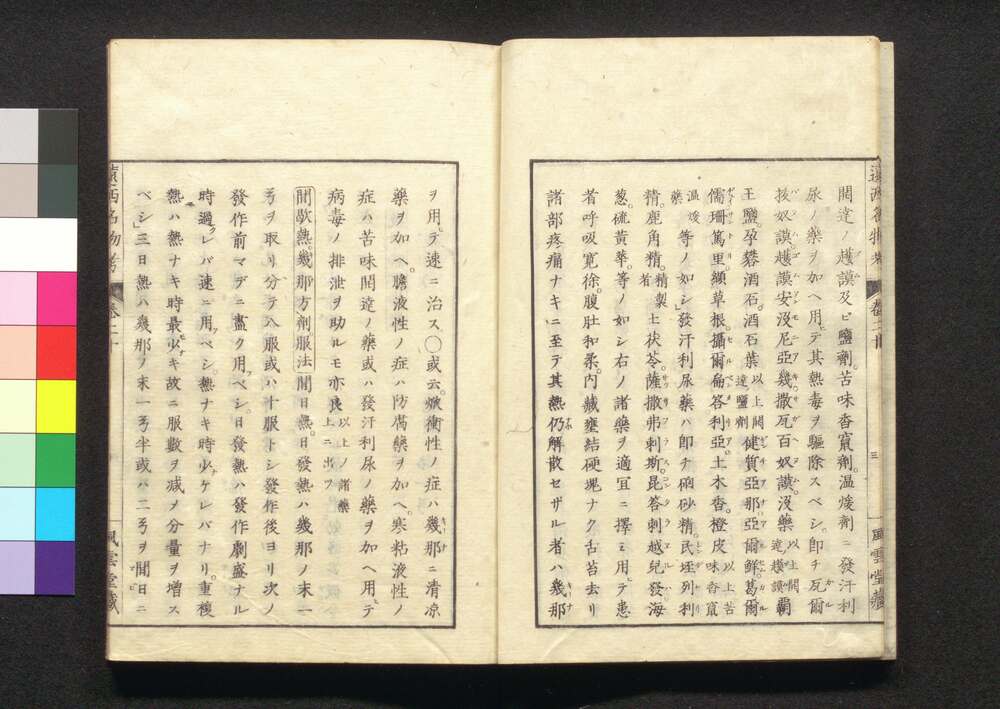 開達ノ越謨及ビ鹽劑。苦味香竄劑。温煖劑ニ發汗利
尿ノ藥ヲ加ヘ用テ其熱毒ヲ驅除スベシ。即チ瓦爾
抜奴謨越謨安没尼亞幾。撒瓦百奴謨。没藥以上開達越謨覇
王鹽。孕礬酒石。酒石葉以上開達鹽劑健質亞那。亞爾鮮。葛爾
儒珊篤里。纈草根。攝爾扁答利亞。土木香。橙皮以上苦味香竄
温煖藥等ノ如シ」發汗利尿藥ハ即チ硇砂精。民垤列利
精。鹿角精。精製者土茯苓。薩撒弗剌斯。昆答剌越兒發。海
葱。硫黄華。等ノ如シ右ノ諸藥ヲ適宜ニ擇ミ用テ患
者呼吸寛徐。腹肚和柔。内臓壅結硬塊ナク舌苔去リ
諸部疼痛ナキニ至テ其熱仍解散セザル者ハ幾那
三
風雲堂藏
ヲ用テ速ニ治ス〇或云。焮衝性ノ症ハ幾那ニ清凉
藥ヲ加ヘ。膽液性ノ症ハ防腐藥ヲ加ヘ。寒粘液性ノ
症ハ苦味開達ノ藥或ハ發汗利尿ノ藥ヲ加ヘ用テ
病毒ノ排泄ヲ助ルモ亦良以上ノ諸藥上ニ出ツ
間歇熱。幾那方劑服法 間日熱。日發熱ハ幾那ノ末一
弓ヲ取リ分テ八服或ハ十服トシ發作後ヨリ次ノ
發作前マデニ盡ク用ベシ。日發熱ハ發作劇盛ナル
時過レバ速ニ用ベシ。熱ナキ時少ケレバナリ。重複
熱ハ熱ナキ時最少キ故ニ服數ヲ减メ分量ヲ増ス
ベシ」三日熱ハ幾那ノ末一弓半或ハ二弓ヲ間日ニ
遠西名物考 卷二十
風雲堂藏